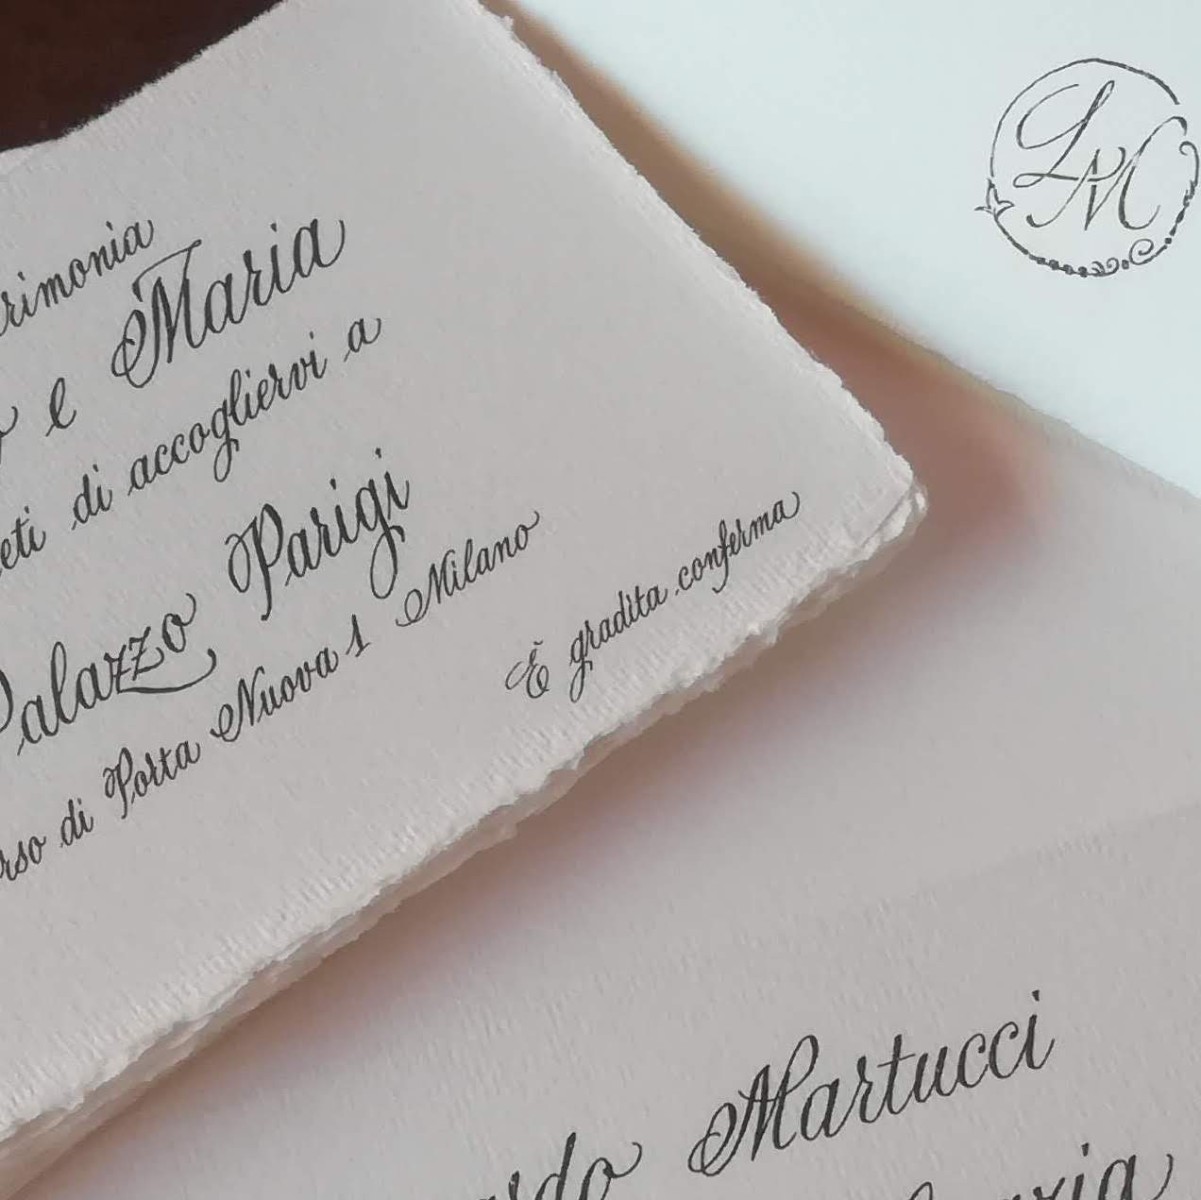 e Maria
di accogliervi a
Palazzo Parigi
di Porta Nuova 1 Milano
È gradita conferma
LM
Martucci